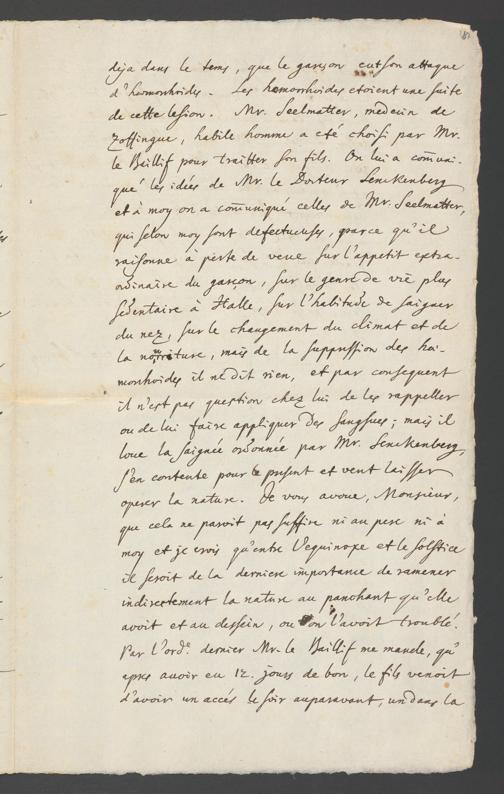 deja dans le tems, que le garçon eut son attaque
d'hæmorrhoides. Les hemorrhoides etoient une suite
de cette lesion. Mr. Seelmatter, medecin de
Zoffingue, habile homme a eté choisi par Mr.
le Baillif pour traitter son fils. On lui a com̄uni-
qué les idées de Mr. le Docteur Senckenberg
et à moy on a com̄uniqué celles de Mr. Seelmatter,
qui selon moy sont defectueuses, parce qu'il
raisonne à perte de veue sur l'appetit extra-
ordinaire du garçon, sur le genre de vie plus
sedentaire à Halle, sur l'habitude de saigner
du nez, sur le changement du climat et de
la nourriture, mais de la suppression des hæ-
morrhoides il ne dit rien, et par consequent
il n'est pas question chez lui de les rappeller
ou de lui faire appliquer des sangsues; mais il
loue la saignée ordonnée par Mr. Senckenberg,
s'en contente pour le present et veut laisser
operer la nature. Je vous avoue, Monsieur,
que cela ne paroit pas suffire ni au pere ni à
moy et je crois qu'entre l'equinoxe et le solstice
il seroit de la derniere importance de ramener
indirectement la nature au panchant qu'elle
avoit et au dessein, ou l'on l'avoit troublé.
Par l'ord.e dernier Mr. le Baillif me mande, qu'
apres avoir eu 12. jours de bon, le fils venoit
d'avoir un accés le soir auparavant, un dans la